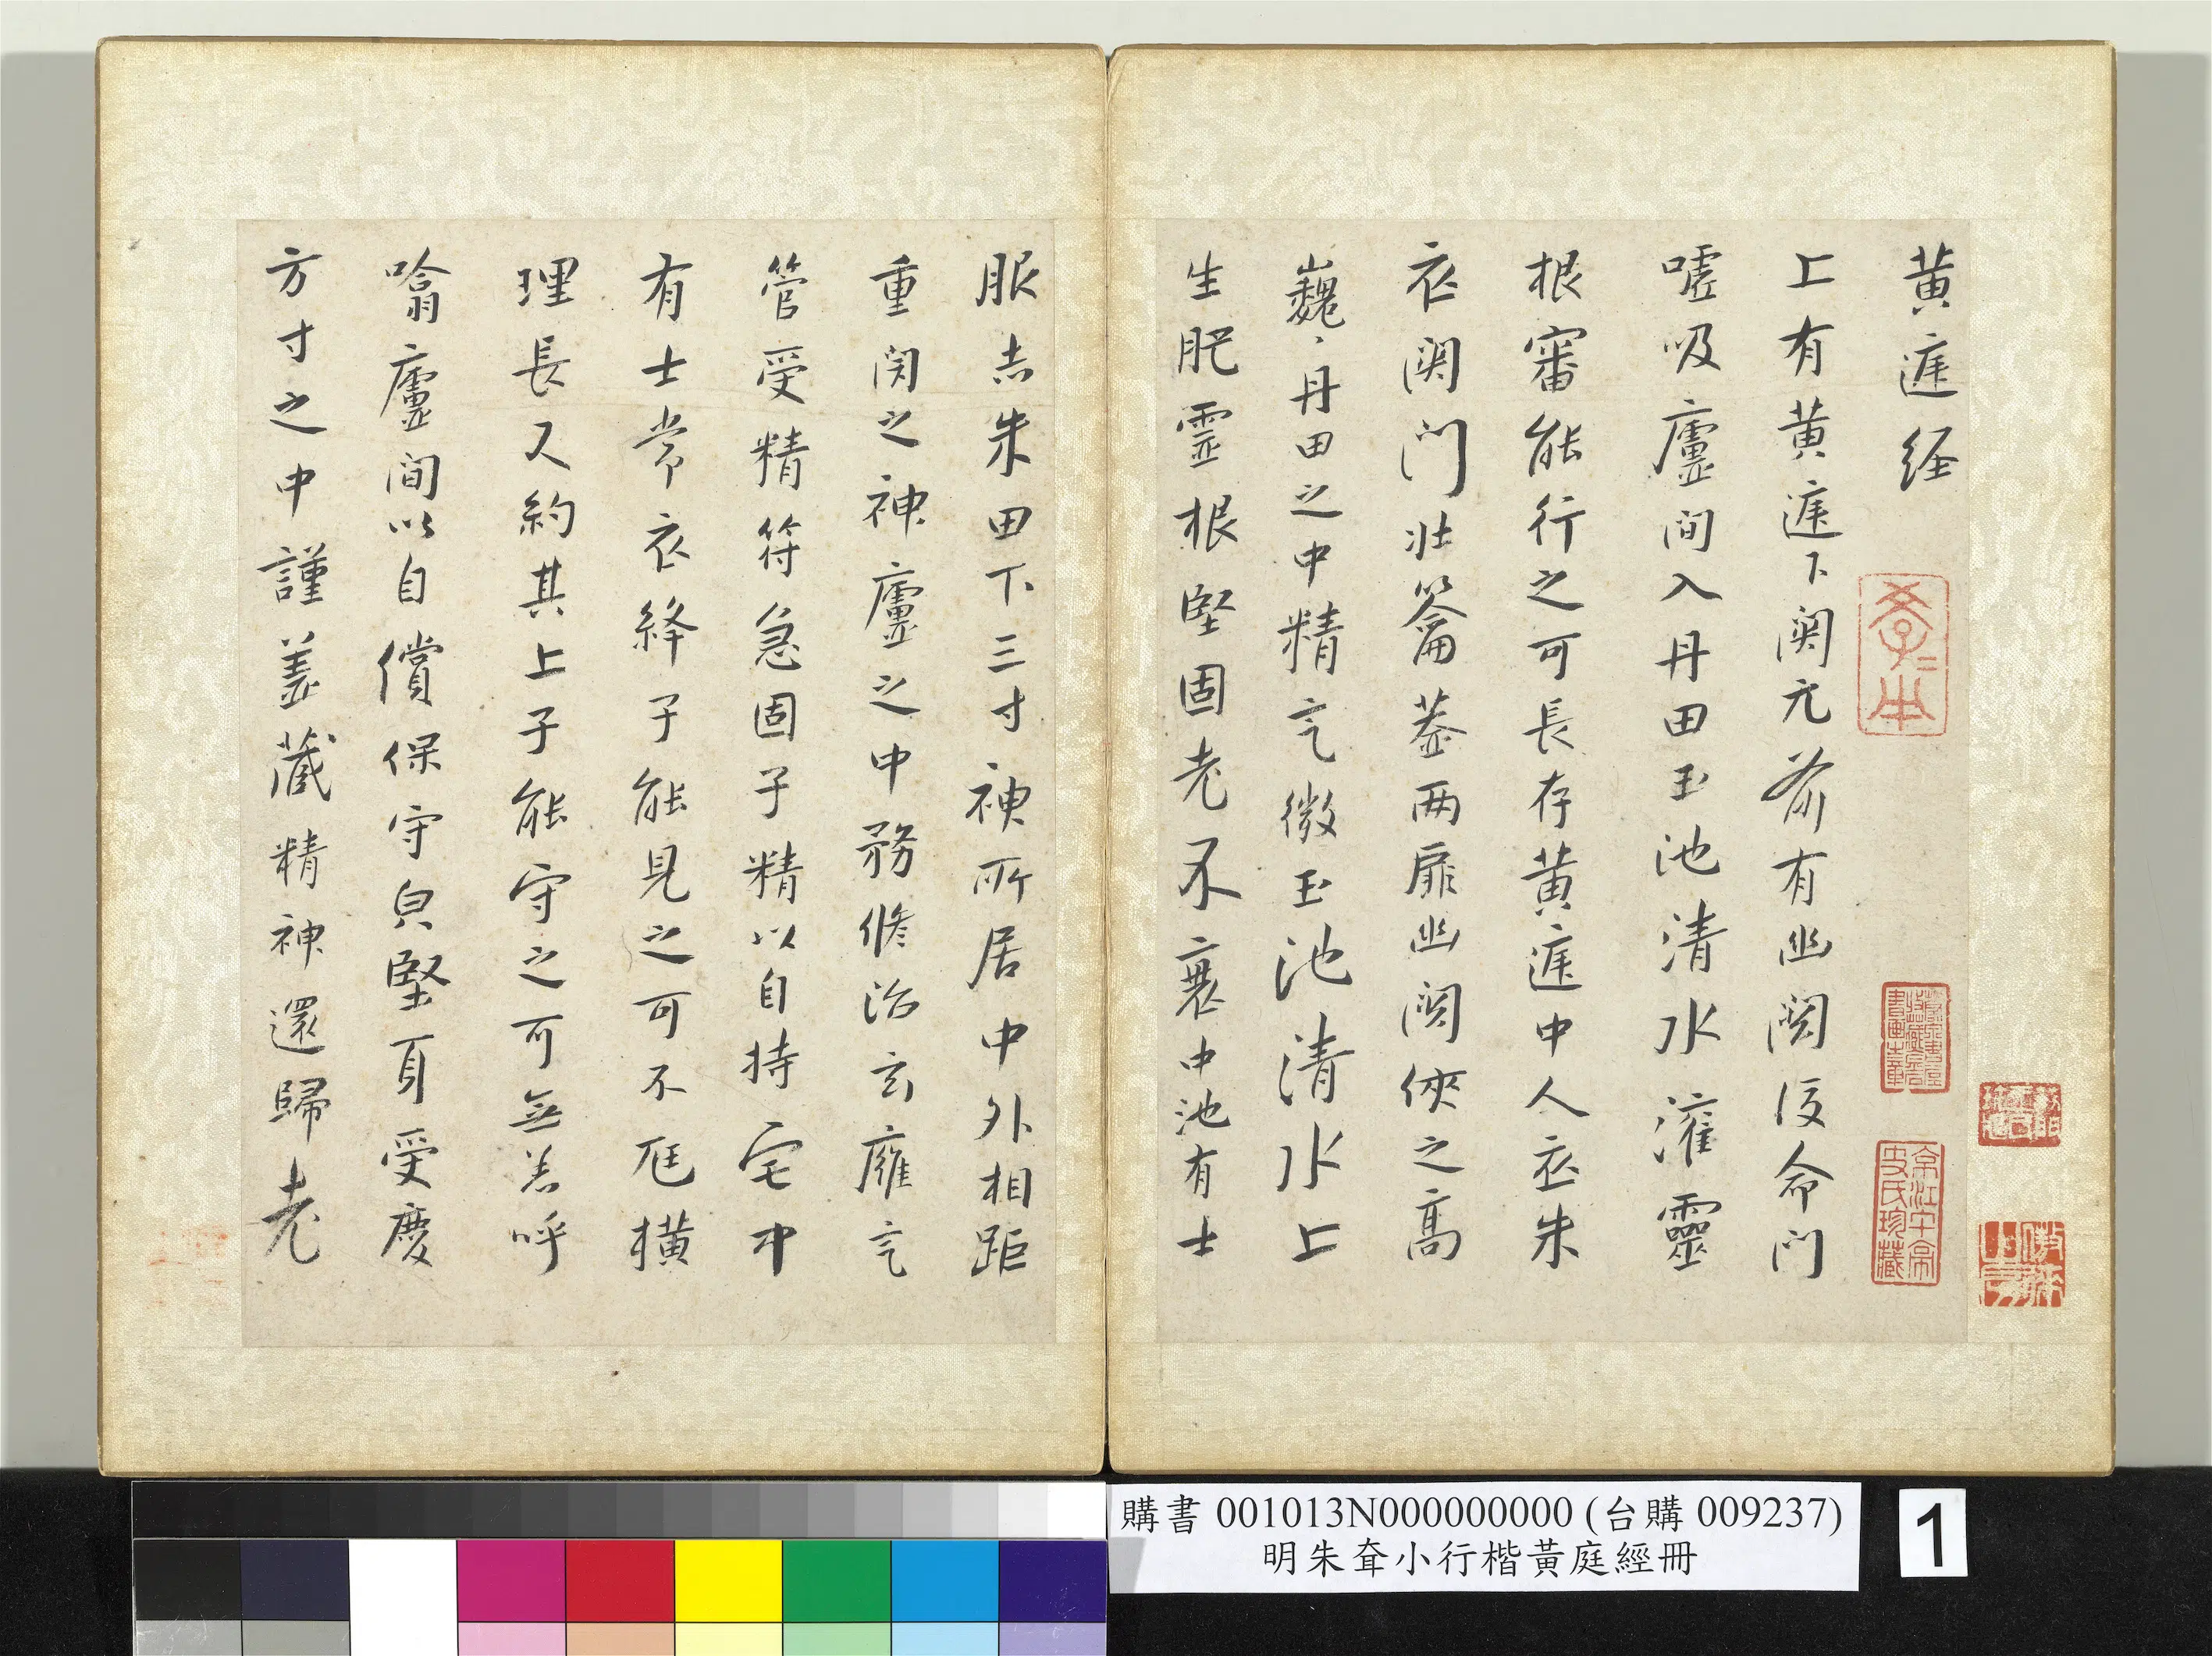 黃庭経
上有黃庭下関元前有幽闕後命門
噓吸廬間入丹田玉池清水灌靈
根審能行之可長存黃庭中人衣朱
衣関門壯籥蓋两扉幽闕俠之高
巍丶丹田之中精氣微玉池清水上
生肥霊根堅固老不衰中池有士
服赤朱田下三寸神所居中外相距
重閉之神廬之中務脩治玄廱氣
管受精符急固子精以自持宅中
有士常衣絳子能見之可不尫橫
理長尺約其上子能守之可無恙呼
噏廬間以自償保守皃堅身受慶
方寸之中謹蓋藏精神還歸老
購書 001013N000000000 (台購 009237)
明朱耷小行楷黃庭經冊
1